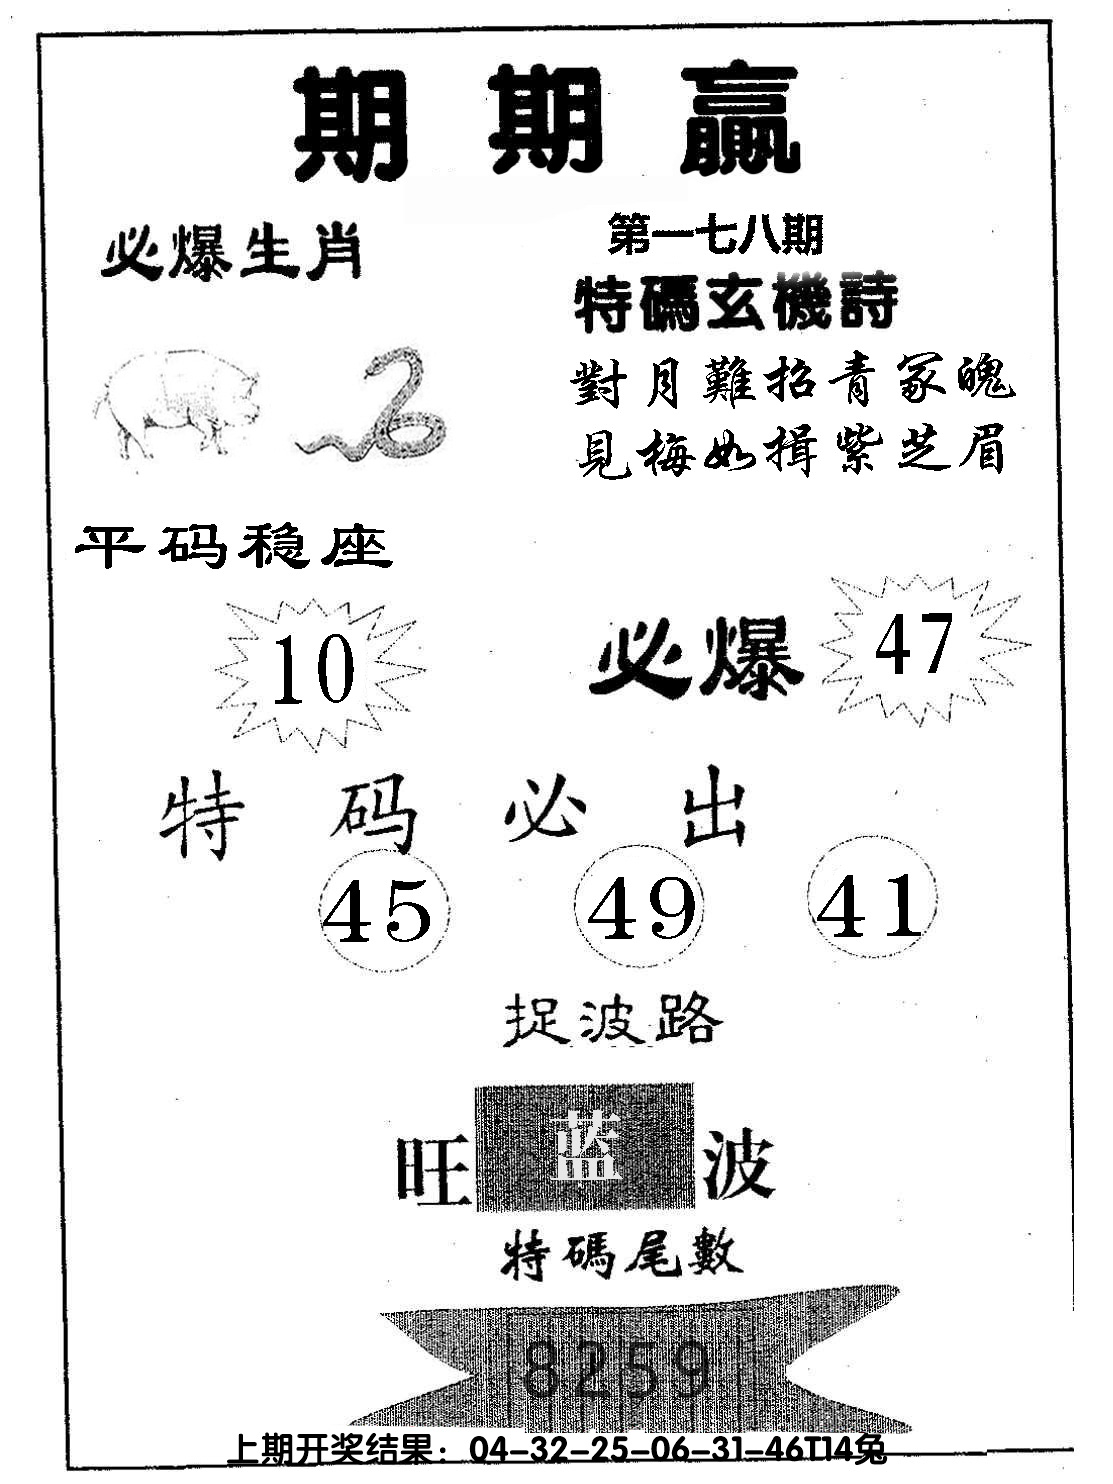 期期赢
必爆生肖
第一七八期
特碼玄機詩
對月難招青冢魄
見梅如揖紫芝眉
平码稳座
10
必爆 47
特码必出
45 49 41
捉波路
旺蓝波
特碼尾數
8259
上期开奖结果：04-32-25-06-31-46T14兔